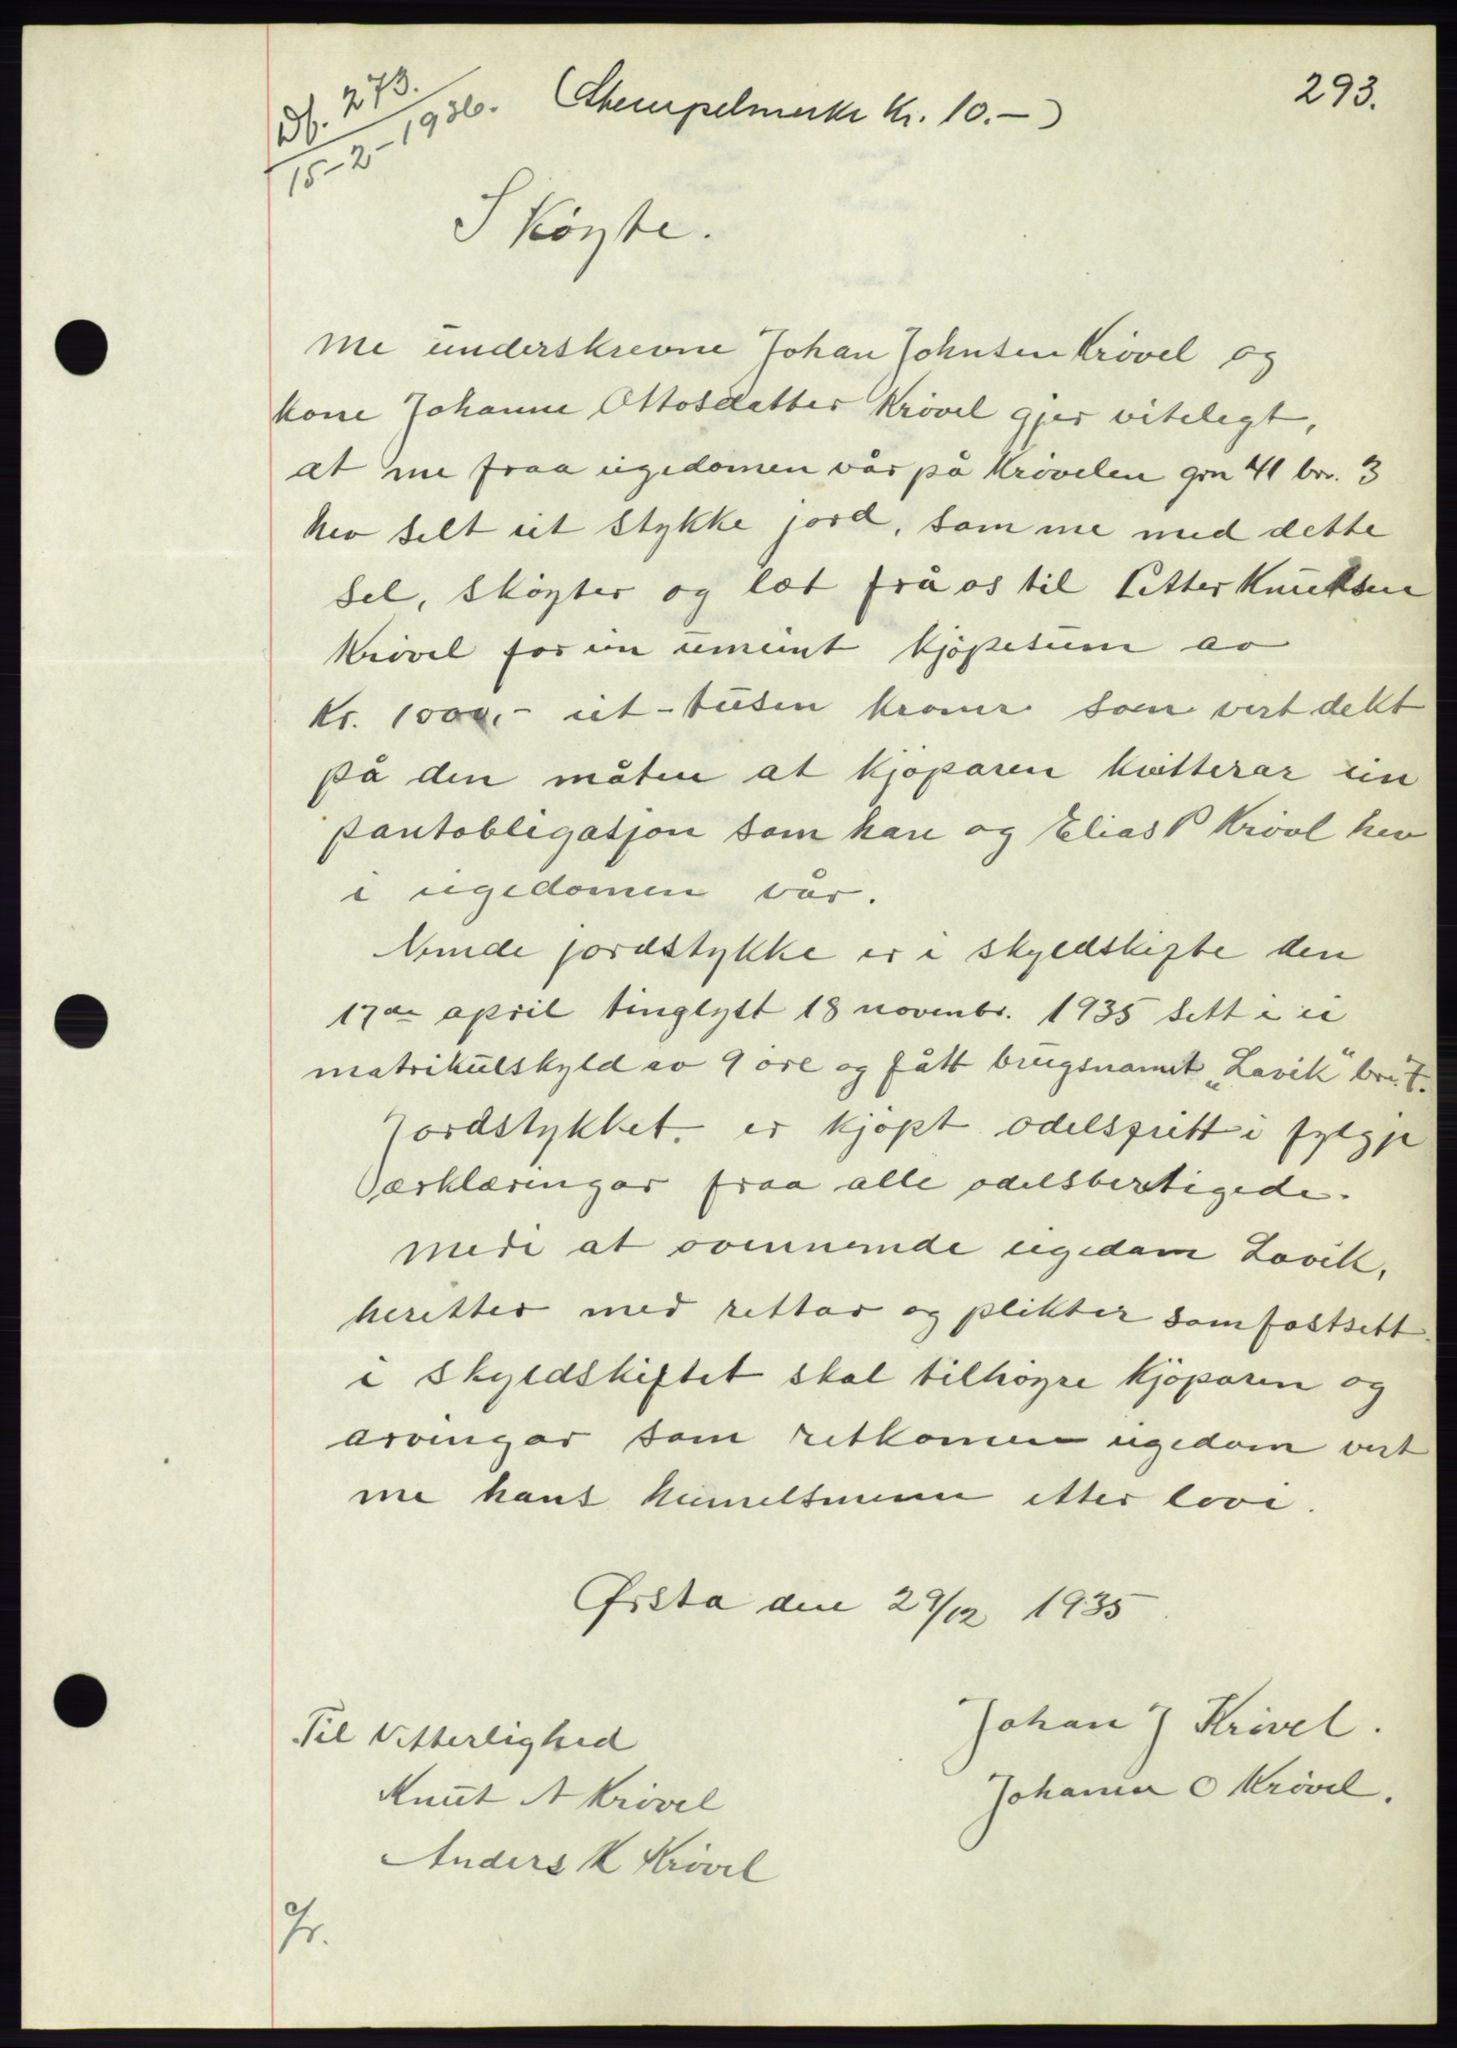 293.
Df. 273.
15-2-1936.
(Stempelmerke Kr. 10.-)
Skøyte.
Me underskrevne Johan Johnsen Krøvel og
kone Johanne Ottosdatter Krøvel gjer vitelegt,
at me fraa eigedomen vår på Krøvelen grn 41 br. 3
hev selt eit stykke jord, som me med dette
sel, skøyter og læt frå os til Petter Knutsen
Krøvel for ein umeint kjøpesum av
Kr. 1000,- eit-tusen kroner som vert dekt
på den måten at kjøparen kvitterar ein
pantobligasjon som han og Elias P Krøvl hev
i eigedomen vår.
Nemde jordstykke er i skyldskifte den
17de april tinglyst 18 novenbr. 1935 sett i ei
matrikulskyld av 9 øre og fått brugsnamet „Lavik" br. 7.
Jordstykket er kjøpt odelsfritt i fylgje
ærklæringar fraa alle odelsberetigede.
Medi at ovennemde eigedom Lavik,
heretter med rettar og plikter som fastsett
i skyldskiftet skal tilhøyre kjøparen og
arvingar som retkomen eigedom vert
me hans heimelsmenn etter lovi.
Ørsta den 29/12 1935
Johan J Krøvel.
Johanna O Krøvel.
Til Vitterlighed
Knut A Krøvel
Anders K Krøvel